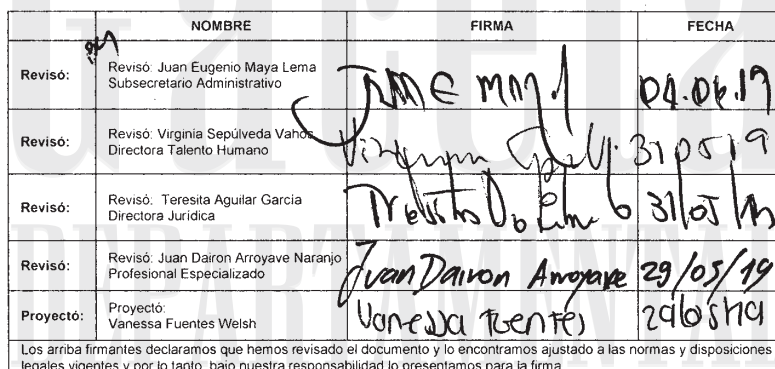 NOMBRE FIRMA FECHA
Revisó: Revisó: Juan Eugenio Maya Lema
Subsecretario Administrativo 04.06.19
Revisó: Revisó: Virginia Sepúlveda Vahos
Directora Talento Humano 310519
Revisó: Revisó: Teresita Aguilar García
Directora Jurídica 31/05/19
Revisó: Revisó: Juan Dairon Arroyave Naranjo
Profesional Especializado Juan Dairon Arroyave 29/05/19
Proyectó: Proyectó:
Vanessa Fuentes Welsh Vanessa Fuentes 29/05/19
Los arriba firmantes declaramos que hemos revisado el documento y lo encontramos ajustado a las normas y disposiciones
legales vigentes y por lo tanto, bajo nuestra responsabilidad lo presentamos para la firma.
DEPARTAMENTAL